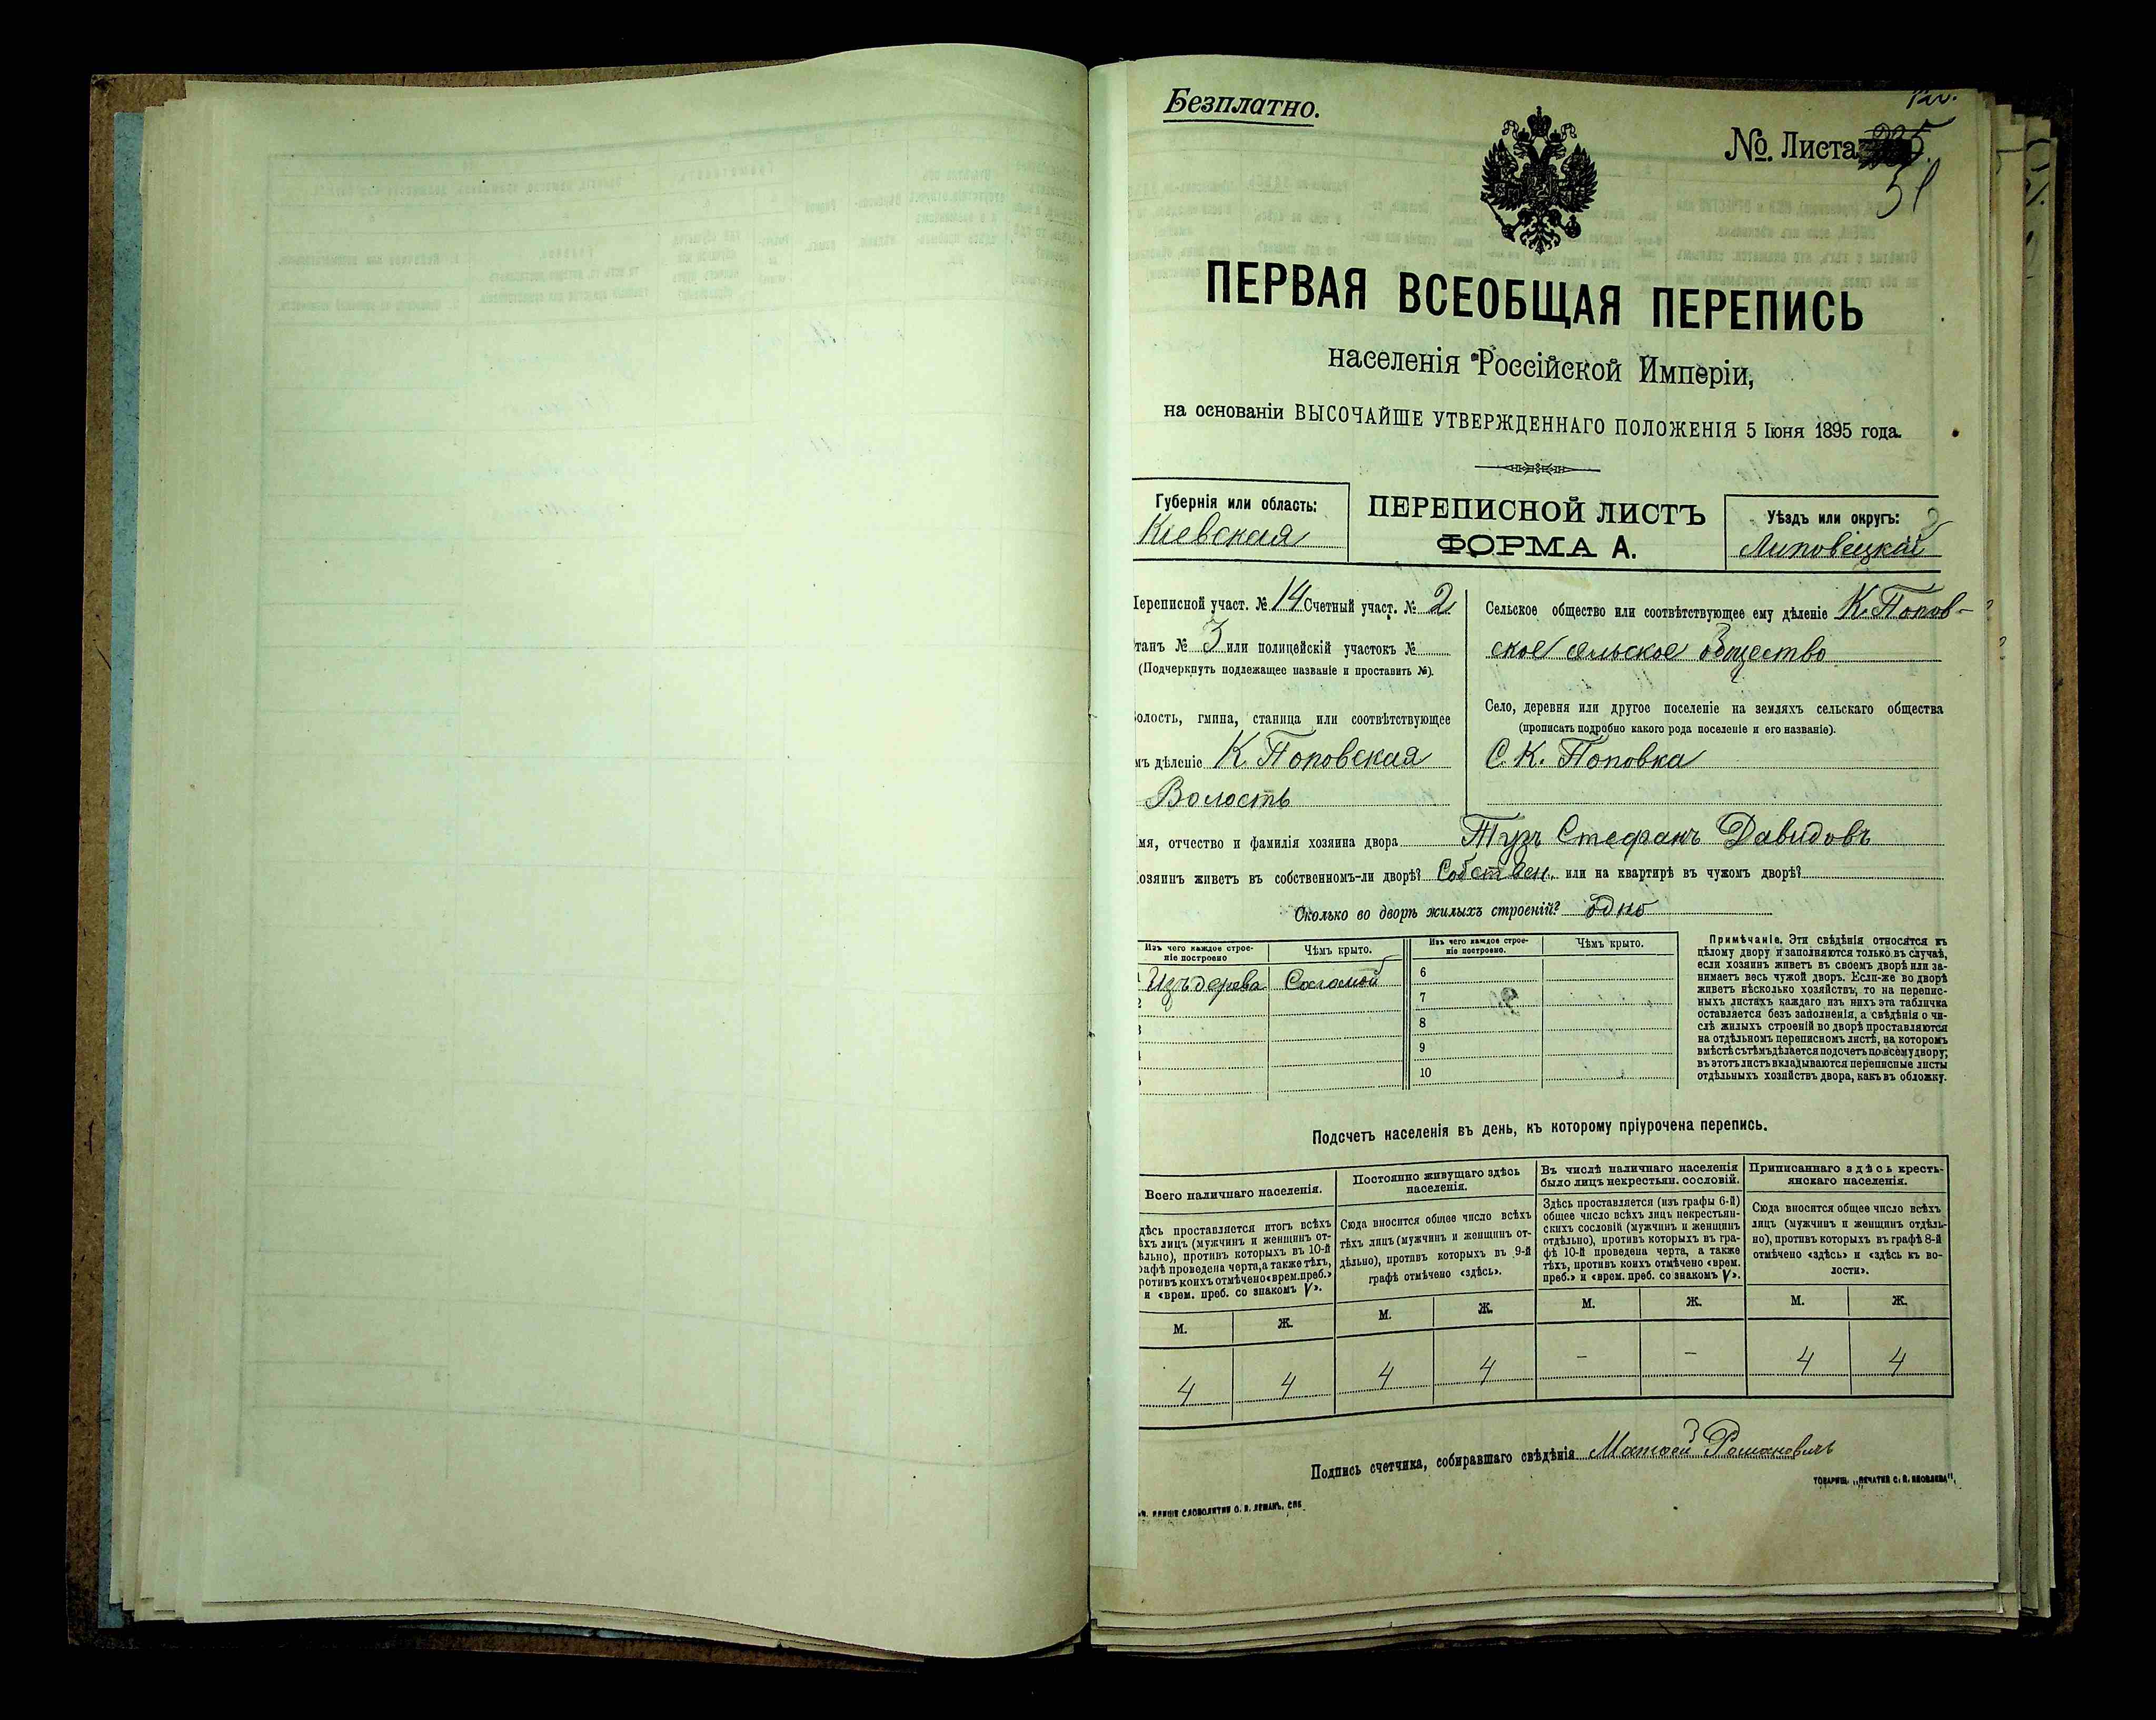 Безплатно.
No. Листа
51
ПЕРВАЯ ВСЕОБЩАЯ ПЕРЕПИСЬ
населенія Россійской Имперіи,
на основаніи ВЫСОЧАЙШЕ УТВЕРЖДЕННАГО ПОЛОЖЕНІЯ 5 Іюня 1895 года.
Губернія или область:
Кіевская
ПЕРЕПИСНОЙ ЛИСТЪ
ФОРМА А.
Уѣздъ или округъ:
Липовецкій
Переписной участ. № 14 Счетный участ. № 2
танъ № 3 или полицейскій участокъ №
(Подчеркнуть подлежащее названіе и проставить №).
олость, гмина, станица или соотвѣтствующее
мъ дѣленіе К. Поповская
Волость
Сельское общество или соотвѣтствующее ему дѣленіе К. Попов-
ское сельское общество
Село, деревня или другое поселеніе на земляхъ сельскаго общества
(прописать подробно какого рода поселеніе и его названіе).
С. К. Поповка
мя, отчество и фамилія хозяина двора Тузъ Стефанъ Давидовъ
озяинъ живетъ въ собственномъ-ли дворѣ? Собствен. или на квартирѣ въ чужомъ дворѣ?
Сколько во дворѣ жилыхъ строеній? одно
Изъ чего каждое строе-
ніе построено
Чѣмъ крыто.
Изъ чего каждое строе-
ніе построено.
Чѣмъ крыто.
1 Изъ дерева Соломой
2
3
4
5
6
7
8
9
10
Примѣчаніе. Эти свѣдѣнія относятся къ
цѣлому двору и заполняются только въ случаѣ,
если хозяинъ живетъ въ своемъ дворѣ или за-
нимаетъ весь чужой дворъ. Если-же во дворѣ
живетъ нѣсколько хозяйствъ, то на перепис-
ныхъ листахъ каждаго изъ нихъ эта табличка
оставляется безъ заполненія, а свѣдѣнія о чи-
слѣ жилыхъ строеній во дворѣ проставляются
на отдѣльномъ переписномъ листѣ, на которомъ
вмѣстѣ съ тѣмъ дѣлается подсчетъ по всему двору;
въ этотъ листъ вкладываются переписные листы
отдѣльныхъ хозяйствъ двора, какъ въ обложку.
Подсчетъ населенія въ день, къ которому пріурочена перепись.
Всего наличнаго населенія.
дѣсь проставляется итогъ всѣхъ
ѣхъ лицъ (мужчинъ и женщинъ от-
ѣльно), противъ которыхъ въ 10-й
рафѣ проведена черта, а также тѣхъ,
ротивъ коихъ отмѣчено «врем. преб.»
и «врем. преб. со знакомъ V».
Постоянно живущаго здѣсь
населенія.
Сюда вносится общее число всѣхъ
тѣхъ лицъ (мужчинъ и женщинъ от-
дѣльно), противъ которыхъ въ 9-й
графѣ отмѣчено «здѣсь».
Въ числѣ наличнаго населенія
было лицъ некрестьян. сословій.
Здѣсь проставляется (изъ графы 6-й)
общее число всѣхъ лицъ некрестьян-
скихъ сословій (мужчинъ и женщинъ
отдѣльно), противъ которыхъ въ гра-
фѣ 10-й проведена черта, а также
тѣхъ, противъ коихъ отмѣчено «врем.
преб.» и «врем. преб. со знакомъ V».
Приписаннаго здѣсь кресть-
янскаго населенія.
Сюда вносится общее число всѣхъ
лицъ (мужчинъ и женщинъ отдѣль-
но), противъ которыхъ въ графѣ 8-й
отмѣчено «здѣсь» и «здѣсь къ во-
лости».
М. Ж. М. Ж. М. Ж. М. Ж.
4 4 4 4 – – 4 4
Подпись счетчика, собиравшаго свѣдѣнія Матвей Романовичъ
ТОВАРИЩ. „ПЕЧАТНЯ С. П. ЯКОВЛЕВА“,
КЛИШЕ СЛОВОЛИТНИ О. И. ЛЕМАНЪ, СПБ.